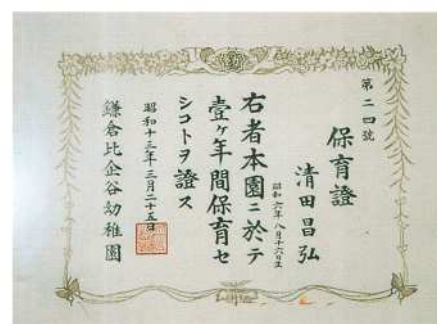 第二四號
保育證
清田昌弘
昭和六年八月十六日生
右者本園ニ於テ
壹ヶ年間保育セ
シコトヲ證ス
昭和十三年三月二十五日
鎌倉比企谷幼稚園